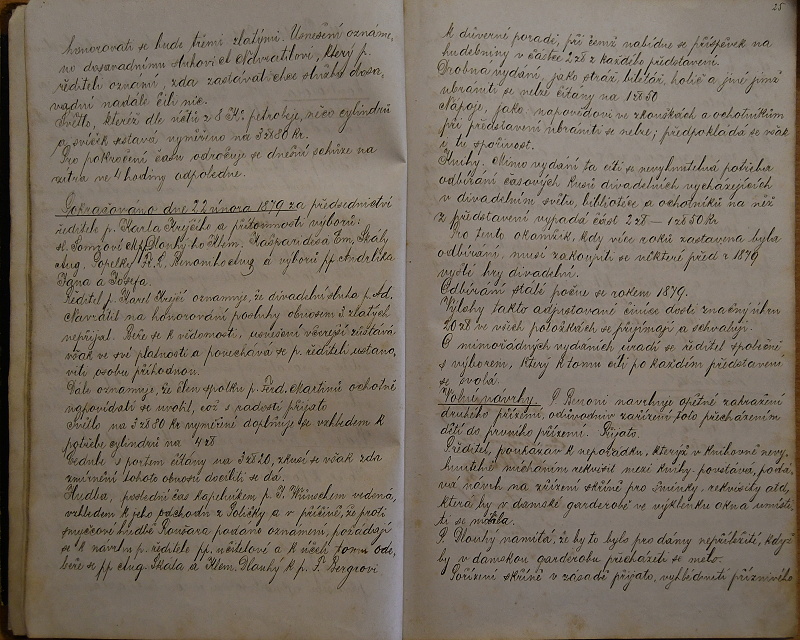 honorovati se bude třemi zlatými. Usnesení oznáme-
no dosavadnímu Antonovi Navrátilovi, který p.
řediteli oznámí, zda zastávat chce službu dosa-
vadní nadále čili nic.
Světlo, kteréž dle nětž 8 Kr. petroleje, něco cylindrů
a svíček sestává vyměřeno na 3 zl 80 kr.
Pro pokročení času odročuje se dnešní schůze na
zítra ve 4 hodiny odpoledne.
Pokračováno dne 22 února 1879 za předsednictví
ředitele p. Karla Krejčího a přítomnosti výborů:
Aug. Popelky, Fr. L. Benoniho a výborů pp. Andrlíka
Jana a Josefa.
Ředitel p. Karel Krejčí oznamuje, že divadelní sluha p. Ad.
Navrátil na honorování posluhy obnosem 3 zlatých
nepřijal. Béře se k vědomosti, usnesení včerejší zůstává
však ve své platnosti a ponechává se p. řediteli ustano-
viti osobu příhodnou.
Dále oznamuje, že člen spolku p. Ferd. Martinů ochotně
napovídati se uvolil, což s radostí přijato
Světlo na 3 zl 80 kr vyměřené doplňuje se vzhledem k
potřebě cylindrů na 4 zl
s portem čítány na 3 zl 20, zkusí se však zda
zmírnění tohoto obnosu docíliti se dá.
Hudba, poslední čas kapelníkem p. F. Wünschem vedená,
vzhledem k jeho odchodu z Poličky a v příčině, že proti
smyčcové hudbě Roušara podáno oznámení, požádají
se k návrhu p. ředitele pp. učitelové a k účeli tomu ode-
béře se pp Aug. Skála a Klem. Dlouhý k p. F. Bergrovi
28
k důvěrné poradě, při čemž nabídne se příspěvek na
hudebniny v částce 2 zl z každého představení.
Drobná vydání, jako stráž, biletář, holič a jiné jimž
ubrániti se nelze čítány na 1 zl 50
Nápoje, jako napovědovi ve zkouškách a ochotníkům
při představení ubrániti se nelze; předpokládá se však
i tu spořivost.
Knihy. Mimo vydání ta cítí se nevyhnutelná potřeba
odbírání časových kusů divadelních vycházejících
v divadelním světu, bibliotéce a ochotníku na něž
z představení vypadá část 2 zl — 1 zl 50 kr
Pro tento okamžik, kdy více roků zastavena byla
odbírání, musí zakoupiti se některé před r 1879
vyšlé hry divadelní.
Odbírání stálé počne se rokem 1879.
Výlohy takto adjustované činíce dosti značný úhrn
20 zl ve všech položkách se přijímají a schvalují.
O mimořádných vydáních uradí se ředitel společně
s výborem, který k tomu cíli po každém představení
se svolá.
Volné návrhy. P. Benoni navrhuje opětné zahražení
druhého přízemí, odůvodniv zařízení toto přecházením
dětí do prvního přízemí. Přijato.
Ředitel, poukázav k nepořádku, kterýž v knihovně nevy-
hnutelně mícháním rekvisit mezi knihy povstává, podá-
vá návrh na zřízení skříně pro šminky, rekvisity atd,
která by v dámské garderobě ve výklenku okna umístě-
ti se měla.
P. Dlouhý namítá, že by to bylo pro dámy nepříležité, když
by v dámskou garderobu přecházeti se mělo.
Pořízení skříně v zásadě přijato, vyhlédnutí příznivého